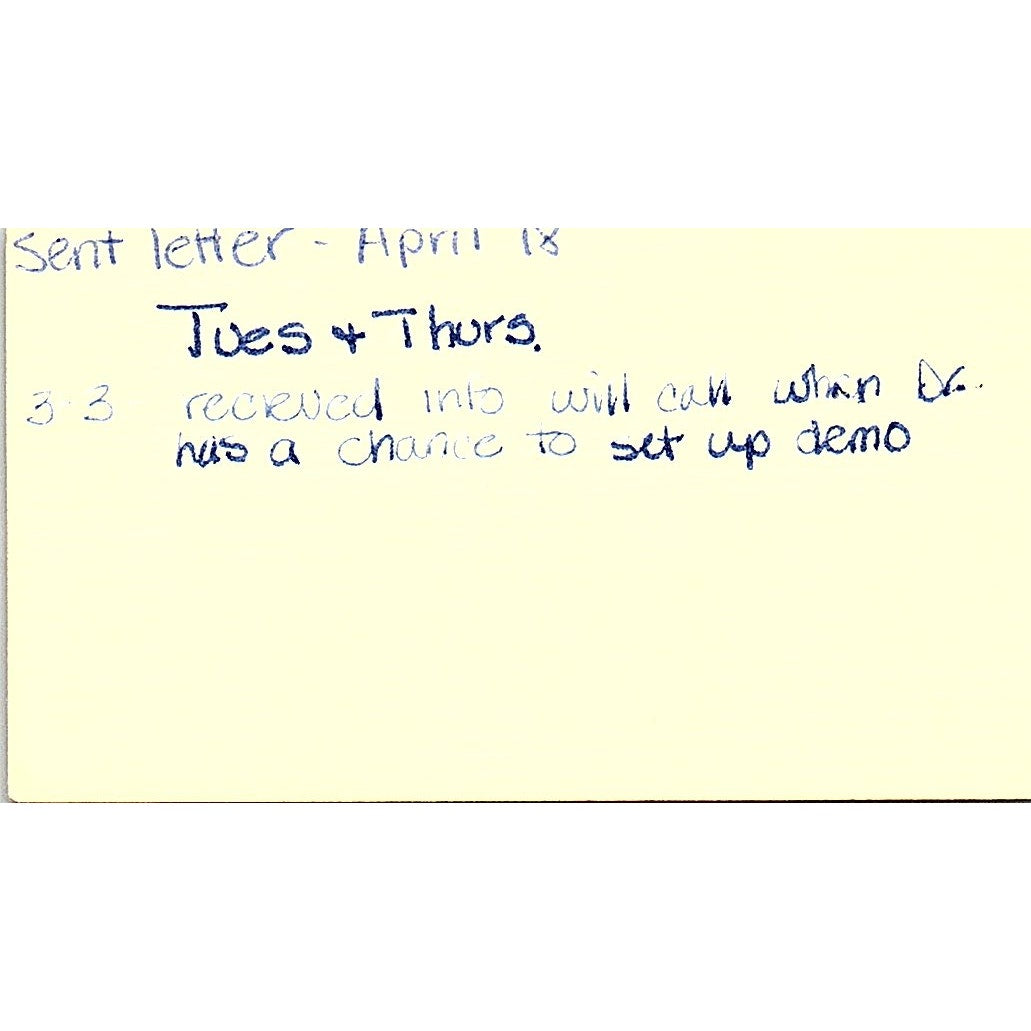 Sent letter - April 18
Tues + Thurs.
3-3 recieved info will call when Dr.
has a chance to set up demo